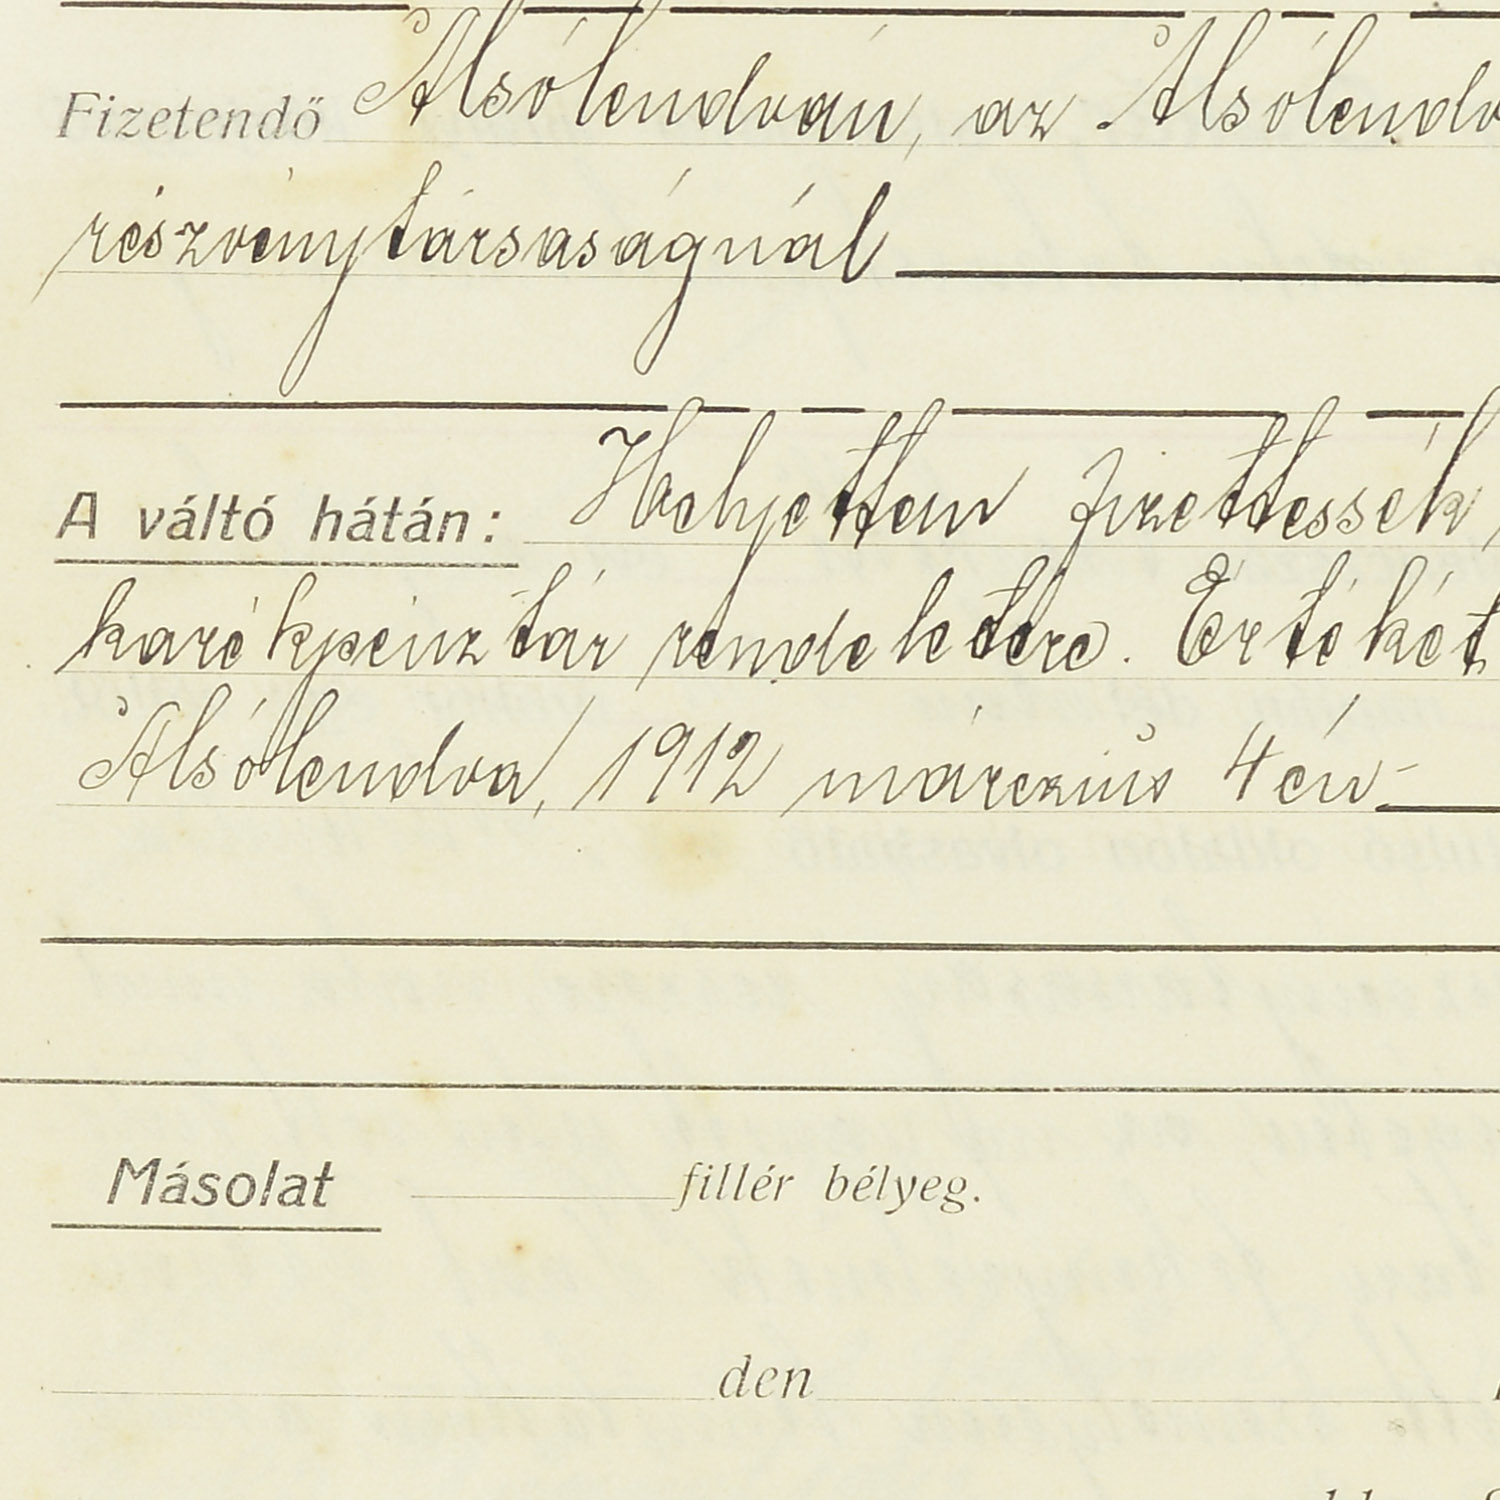 Fizetendő Alsólendván, az Alsólendv
részvénytársaságnál
A váltó hátán: Helyettem fizettessék
karékpénztár rendeletére. Értékét
Alsólendva, 1912 márczius 4én
Másolat fillér bélyeg.
den